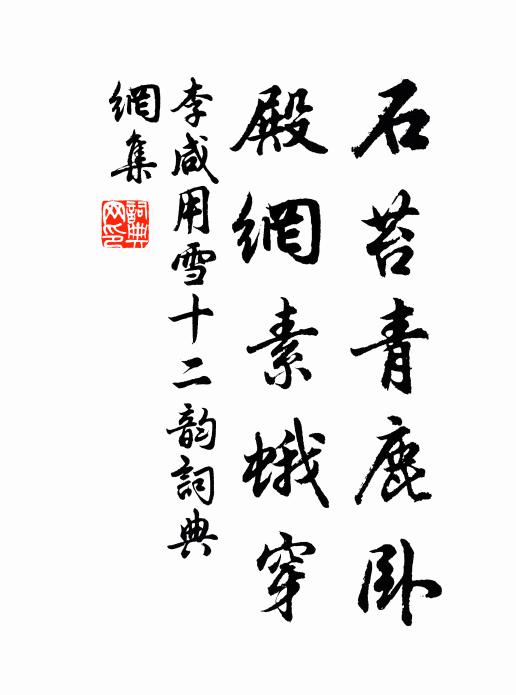 石苔青鹿卧
殿網素蛾穿
李咸用雪十二韵詞典
網集
詞典
网印